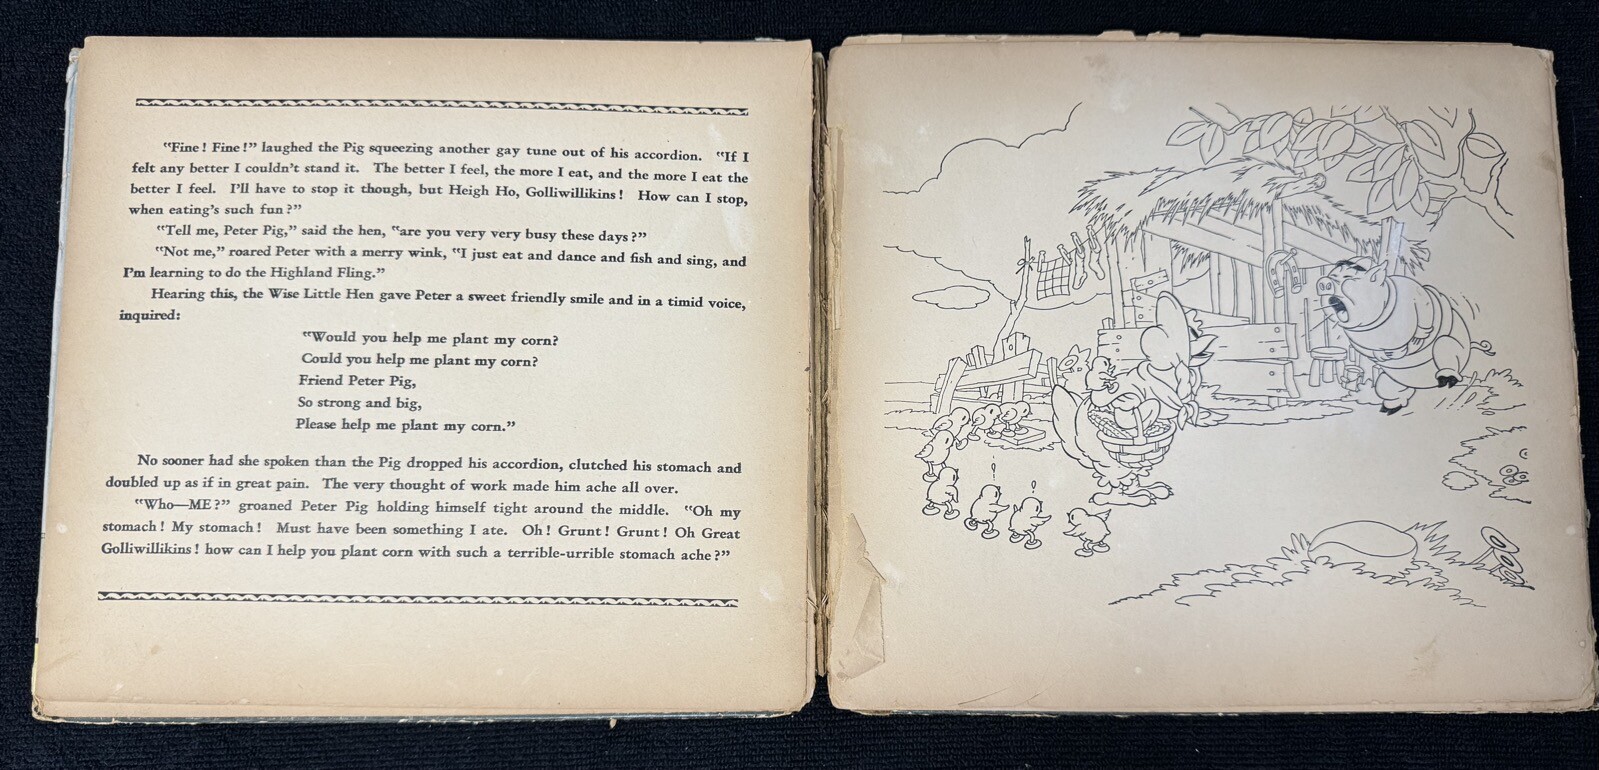 "Fine! Fine!" laughed the Pig squeezing another gay tune out of his accordion. "If I
felt any better I couldn't stand it. The better I feel, the more I eat, and the more I eat the
better I feel. I'll have to stop it though, but Heigh Ho, Golliwillikins! How can I stop,
when eating's such fun?"
"Tell me, Peter Pig," said the hen, "are you very very busy these days?"
"Not me," roared Peter with a merry wink, "I just eat and dance and fish and sing, and
I'm learning to do the Highland Fling."
Hearing this, the Wise Little Hen gave Peter a sweet friendly smile and in a timid voice,
inquired:
"Would you help me plant my corn?
Could you help me plant my corn?
Friend Peter Pig,
So strong and big,
Please help me plant my corn."
No sooner had she spoken than the Pig dropped his accordion, clutched his stomach and
doubled up as if in great pain. The very thought of work made him ache all over.
"Who—ME?" groaned Peter Pig holding himself tight around the middle. "Oh my
stomach! My stomach! Must have been something I ate. Oh! Grunt! Grunt! Oh Great
Golliwillikins! how can I help you plant corn with such a terrible-urrible stomach ache?"